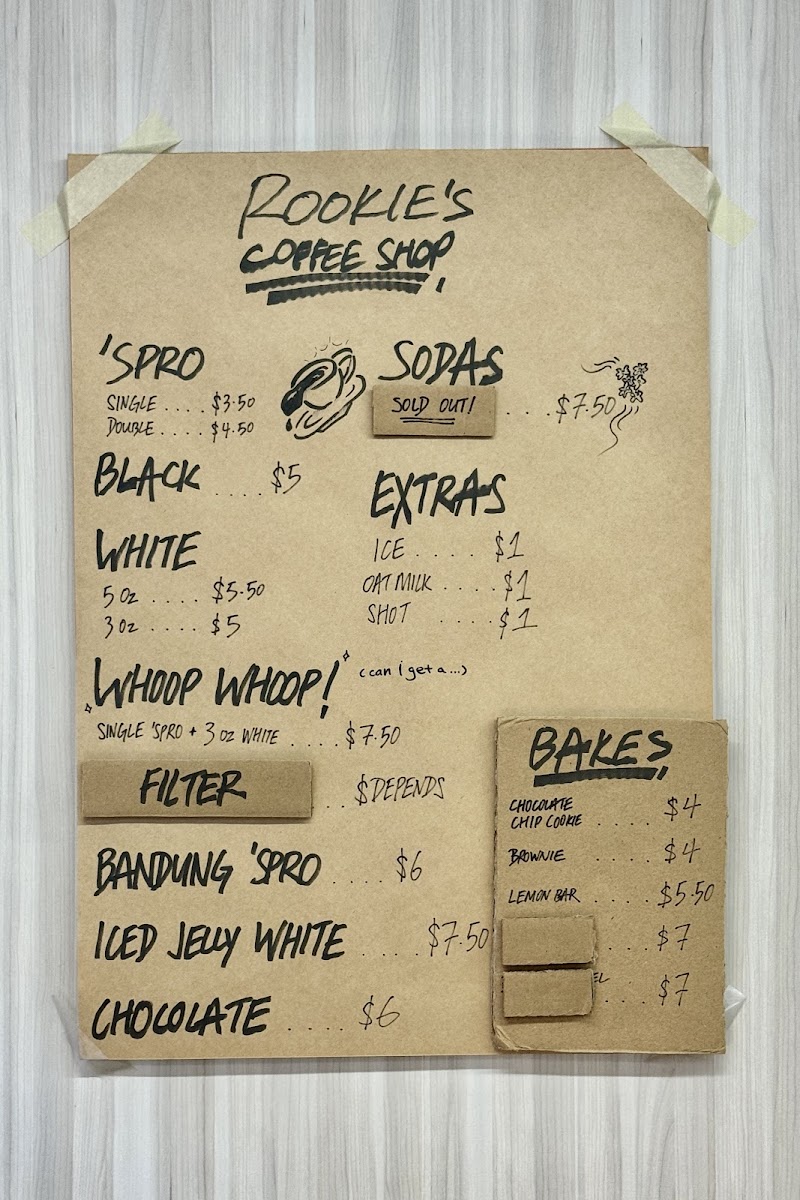 ROOKIE'S
COFFEE SHOP!
'SPRO
SINGLE .... $3.50
DOUBLE .... $4.50
BLACK .... $5
WHITE
5 OZ .... $5.50
3 OZ .... $5
WHOOP WHOOP! (can i get a...)
SINGLE 'SPRO + 3 OZ WHITE .... $7.50
FILTER .. $DEPENDS
BANDUNG 'SPRO .... $6
ICED JELLY WHITE .... $7.50
CHOCOLATE .... $6
SODAS
SOLD OUT! ... $7.50
EXTRAS
ICE .... $1
OAT MILK .... $1
SHOT .... $1
BAKES
CHOCOLATE
CHIP COOKIE .... $4
BROWNIE .... $4
LEMON BAR .... $5.50
... $7
EL ... $7